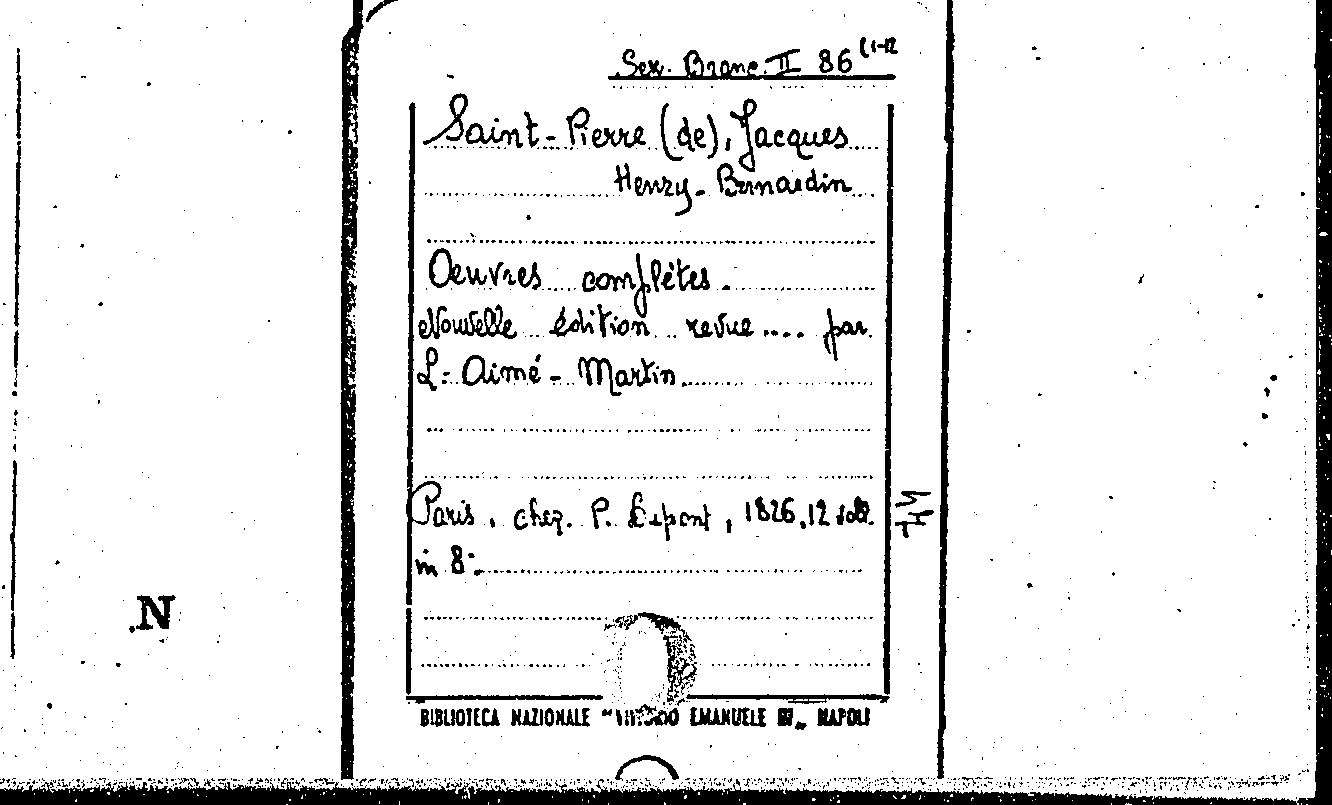 Sez. Branc. II 86 (1-12
Saint-Pierre (de), Jacques
Henry-Bernardin
Oeuvres complètes.
Nouvelle édition revue.... par
L.-Aimé-Martin
Paris, chez. P. Dupont, 1826, 12 voll.
in 8°.
N
BIBLIOTECA NAZIONALE "VITTORIO EMANUELE III" NAPOLI